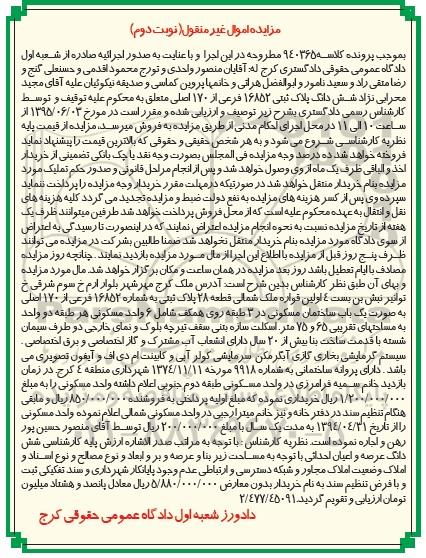 مزایده اموال غیر منقول (نوبت دوم)
بموجب پرونده کلاسه ۹۴۰۳۶۵ مطروحه در این اجرا و با عنایت به صدور اجرائیه صادره از شعبه اول
دادگاه عمومی حقوقی دادگستری کرج له: آقایان منصور واحدی و تورج محمود اقدمی و حسنعلی گنج و
رضا متقی راد و سعید نامور و ابوالفضل هراتی و خانمها پروین کماسی و صدیقه نیکوئیان علیه آقای مجید
محرابی نژاد شش دانگ پلاک ثبتی ۱۶۸۵۲ فرعی از ۱۷۰ اصلی متعلق به محکوم علیه توقیف و توسط
کارشناس رسمی دادگستری بشرح زیر توصیف و ارزیابی شده و مقرر است در مورخ ۱۳۹۵/۰۶/۰۳ از
ساعت ۱۰ الی ۱۱ در محل اجرای احکام مدنی از طریق مزایده به فروش میرسد، مزایده از قیمت پایه
نظریه کارشناسی شروع می شود و به هر شخص حقیقی و حقوقی که بالاترین قیمت را پیشنهاد نماید
فروخته خواهد شد ده درصد وجه مزایده فی المجلس بصورت وجه نقد یا چک بانکی تضمینی از خریدار
اخذ و الباقی ظرف یک ماه از وی وصول خواهد شد و پس از انجام مراحل قانونی و صدور حکم تملیک مورد
مزایده بنام خریدار منتقل خواهد شد در صورتیکه در مهلت مقرر خریدار وجه مزایده را پرداخت ننماید
سپرده وی پس از کسر هزینه های مزایده به نفع دولت ضبط و مزایده تجدید می گردد کلیه هزینه های
نقل و انتقال به عهده محکوم علیه است که از محل فروش پرداخت خواهد شد طرفین میتوانند ظرف یک
هفته از تاریخ مزایده نسبت به نحوه انجام مزایده اعتراض نمایند که در اینصورت تا رسیدگی به اعتراض
از سوی دادگاه مورد مزایده بنام خریدار منتقل نخواهد شد ضمنا طالبین بشرکت در مزایده می توانند
ظرف پنج روز قبل از مزایده با اطلاع این اجرا از مال مورد مزایده بازدید نمایند. چنانچه روز مزایده
مصادف با ایام تعطیل باشد روز بعد مزایده در همان ساعت و مکان برگزار خواهد شد. مال مورد مزایده
و بهای آن طبق نظر کارشناس بدین شرح است: آدرس ملک کرج مهرشهر بلوار ارم خ سوم شرقی خ
توانیر نبش بن بست ۴ اولین قواره ملک شمالی قطعه ۲۸ پلاک ثبتی به شماره ۱۶۸۵۲ فرعی از ۱۷۰ اصلی
به صورت یک باب ساختمان مسکونی در ۳ طبقه روی همکف شامل ۶ واحد مسکونی هر طبقه دو واحد
به مساحتهای تقریبی ۶۵ و ۷۵ متر. اسکلت سازه بتنی سقف تیرچه بلوک و نمای خارجی دو طرف سیمان
شسته با قدمت ساخت بنا بیش از ۲۰ سال دارای انشعاب آب مشترک و گاز اختصاصی و برق اختصاصی.
سیستم گرمایشی بخاری گازی آبگرمکن، سرمایشی کولر آبی و کابینت ام دی اف و آیفون تصویری می
باشد. دارای پروانه ساختمانی به شماره ۹۹۱۸ مورخه ۱۳۷۴/۱۱/۱۱ شهرداری منطقه ۴ کرج. در زمان
بازدید خانم سمیه فرامرزی در واحد مسکونی طبقه دوم جنوبی اعلام داشته واحد مسکونی را به مبلغ
۱/۲۰۰/۰۰۰/۰۰۰ ریال خریداری نموده که مبلغ اولیه پرداختی به فروشنده ۸۵۰/۰۰۰/۰۰۰ ریال و مابقی
هنگام تنظیم سند در دفتر خانه و نیز خانم میترا رجبی در واحد مسکونی شمالی اعلام نموده واحد مسکونی
را از تاریخ ۱۳۹۴/۰۴/۳۱ به مدت یک سال با مبلغ ۲۰۰/۰۰۰/۰۰۰ ریال توسط آقای منصور حسین پور
رهن و اجاره نموده است. نظریه کارشناس: با توجه به مراتب صدر الشاره ارزش پایه کارشناسی شش
دانگ عرصه و اعیان احداثی با توجه به مساحت زیر بنا و عرصه و بر و ابعاد و نوع مصالح و نوع اسناد و
املاک وضعیت املاک مجاور و شبکه دسترسی و ارتباطی عدم وجود پایانکار شهرداری و سند تفکیکی ثبت
و با فرض تنظیم سند به نام خریدار بدون معارض ۵/۸۸۰/۰۰۰/۰۰۰ ریال معادل پانصد و هشتاد میلیون
تومان ارزیابی و تقویم گردید. ۲/۴۷۷/۴۵۰۹۱
دادورز شعبه اول دادگاه عمومی حقوقی کرج